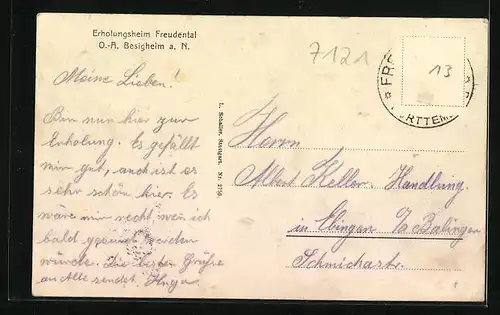 Erholungsheim Freudental
O.-A. Besigheim a. N.
7121
13
FRE
RTTEM
L. Schaller, Stuttgart. Nr. 2759
Meine Lieben!
Bin nun hier zur
Erholung. Es gefällt
mir gut, auch ist es
sehr schön hier. Es
wäre mir recht wen ich
bald gesund werden
würde. Die besten Grüße
an Alle sendet
Herrn
Albert Keller. Handlung.
in Ebingen O/A Balingen
Schmiechastr.